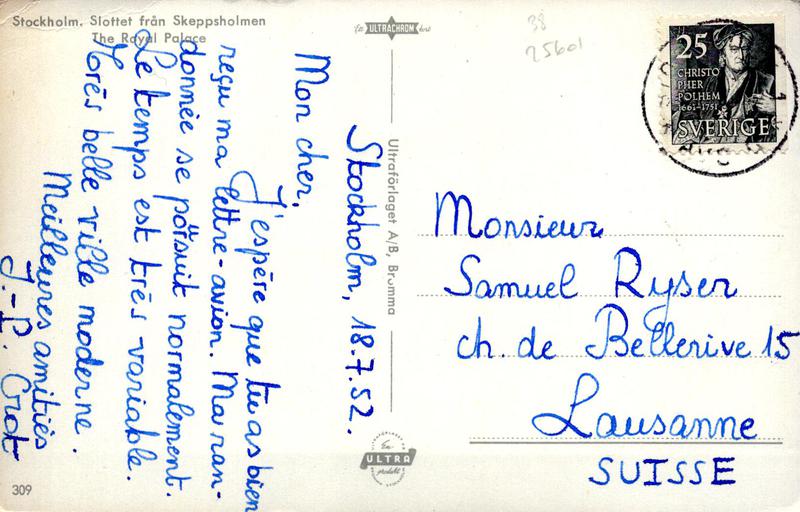 Stockholm. Slottet från Skeppsholmen
The Royal Palace
ULTRACHROM
38
25601
25
CHRISTO
PHER
POLHEM
1661–1751
SVERIGE
Stockholm, 18.7.52.
Mon cher,
J'espère que tu as bien
reçu ma lettre-avion. Ma ran-
donnée se poursuit normalement.
Le temps est très variable.
Très belle ville moderne.
Meilleures amitiés
J.-P. Grot
Ultraförlaget A/B, Bromma
Monsieur
Samuel Ryser
ch. de Bellerive 15
Lausanne
SUISSE
En
ULTRA
produkt
309